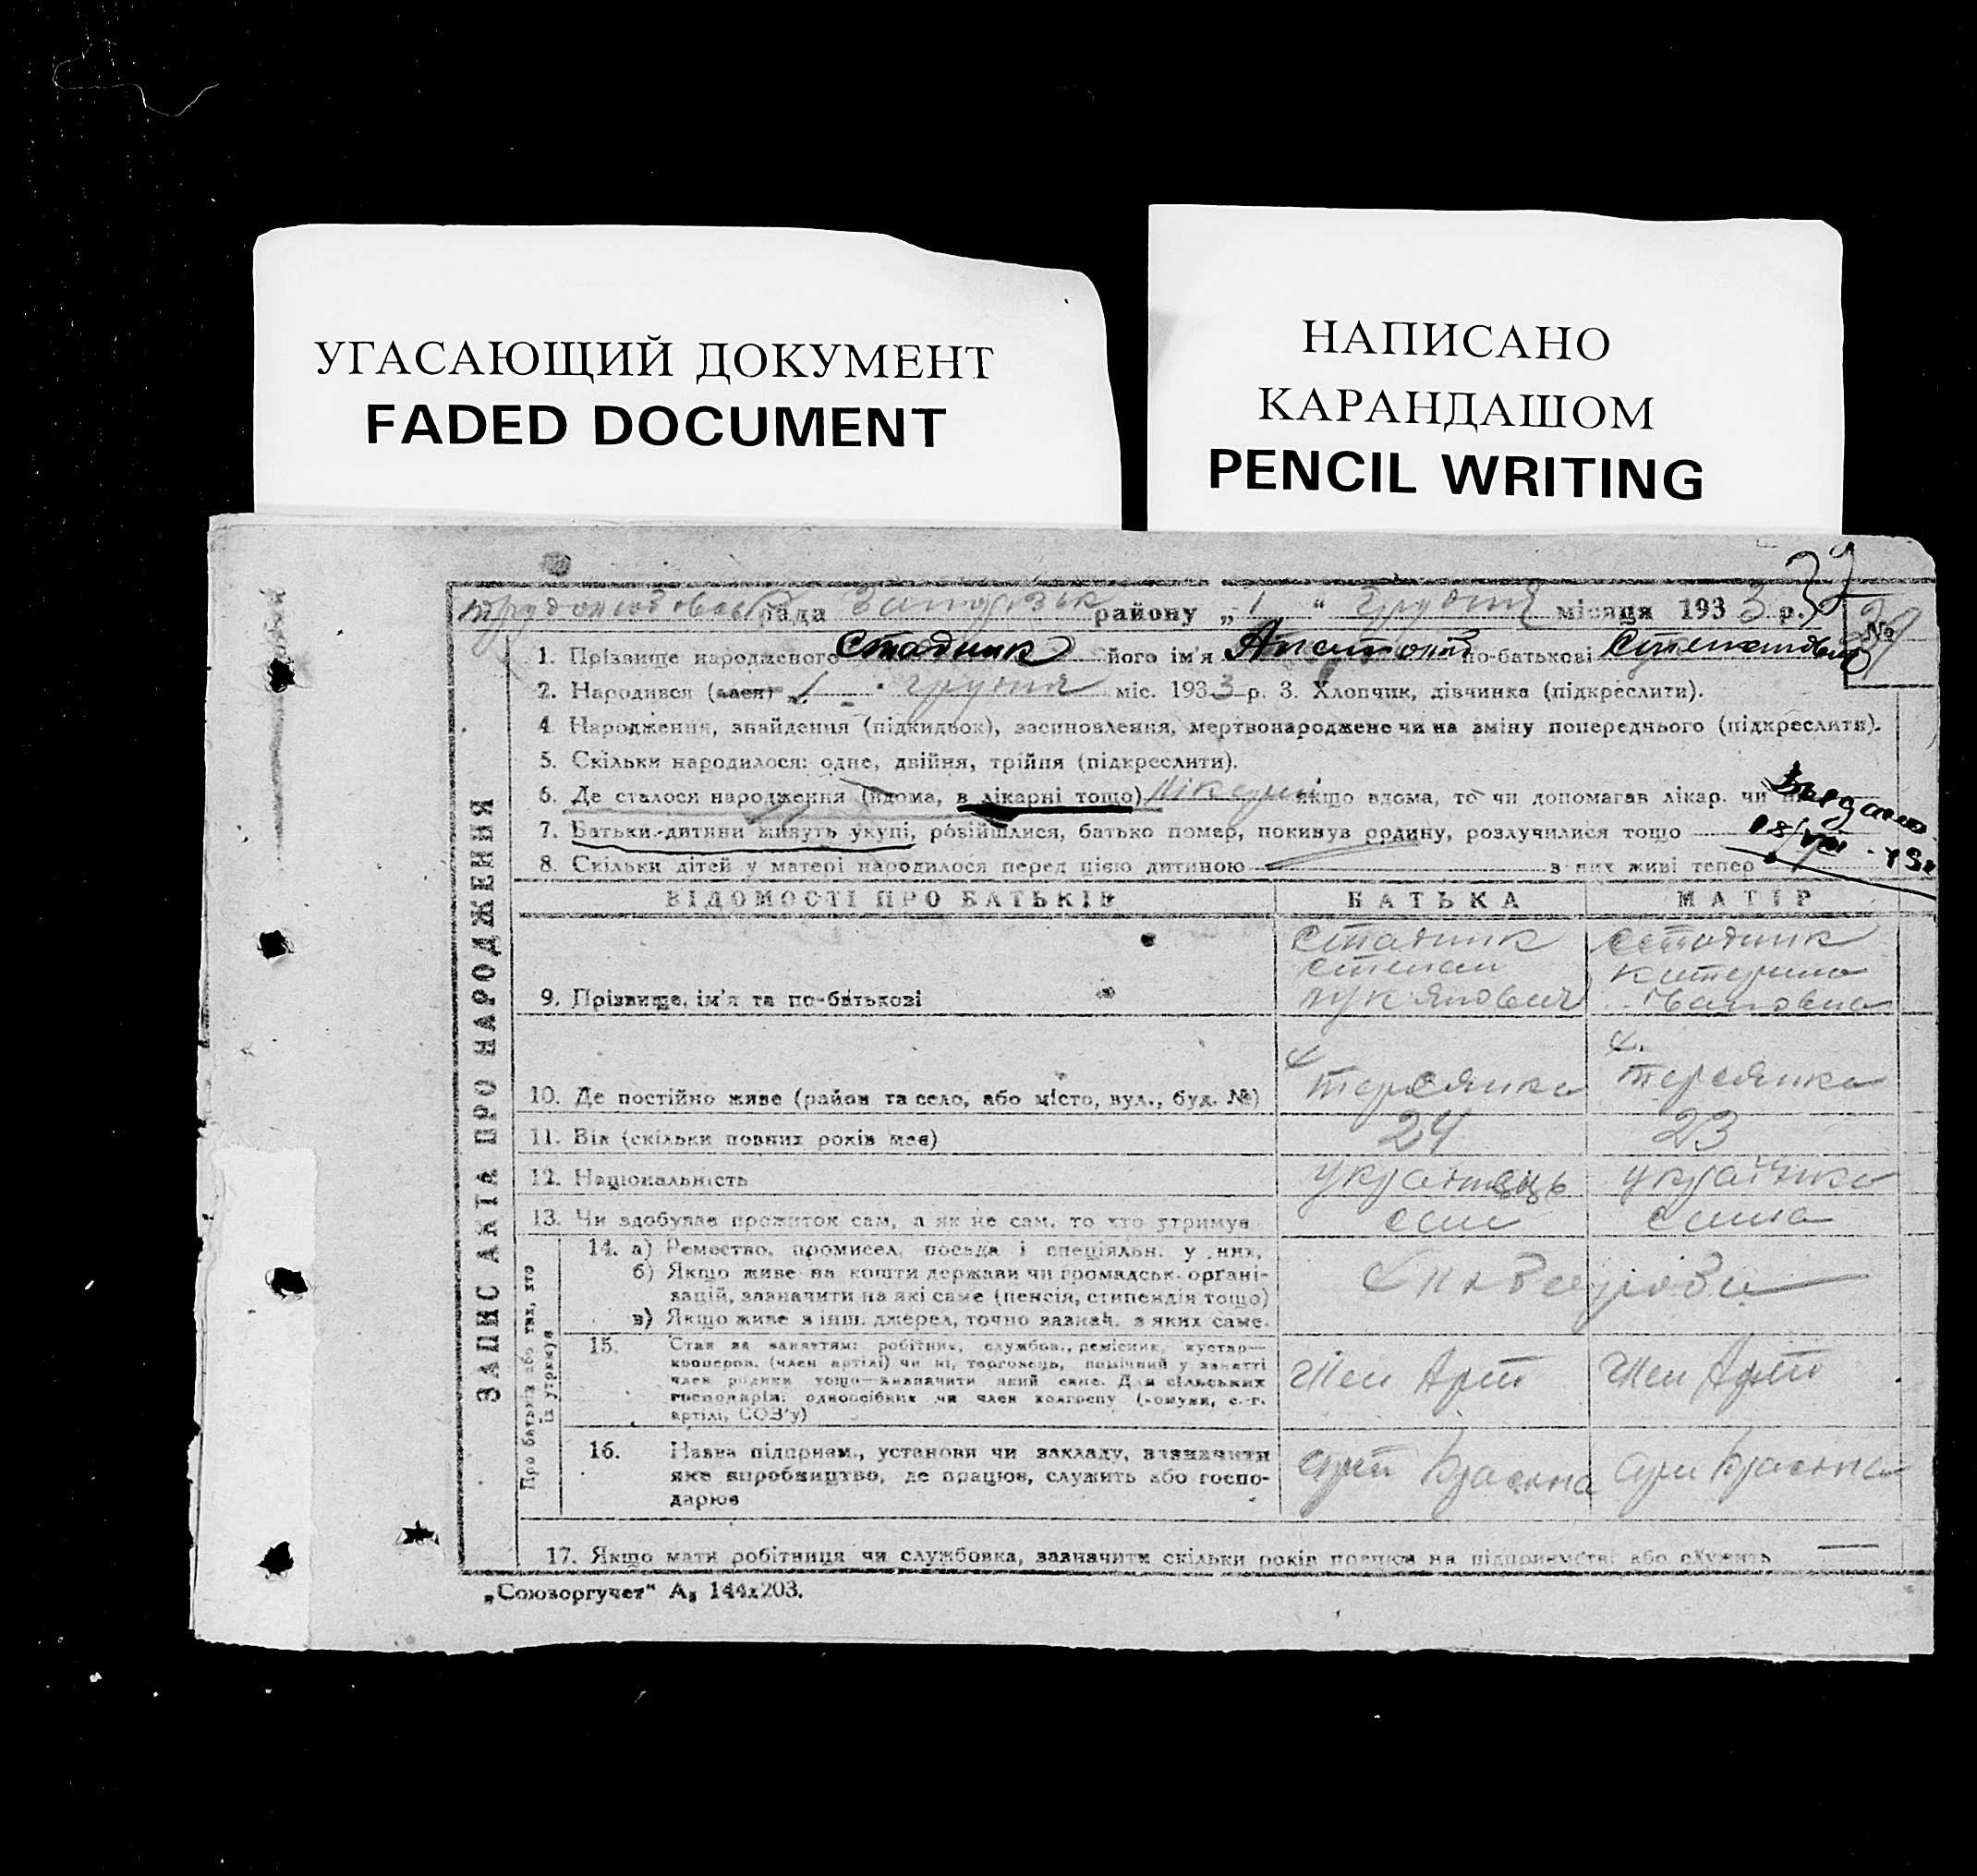 УГАСАЮЩИЙ ДОКУМЕНТ
FADED DOCUMENT
НАПИСАНО
КАРАНДАШОМ
PENCIL WRITING
рада району „ 1 “ Грудня місяця 1933 р.
№ 39
1. Прізвище народженого Стадник його ім'я Анатолій по-батькові Степанович
2. Народився (лася) „ 1 " грудня міс. 1933 р. 3. Хлопчик, дівчинка (підкреслити).
4. Народження, знайдення (підкидьок), засиновлення, мертвонароджене чи на зміну попереднього (підкреслити).
5. Скільки народилося: одне, двійня, трійня (підкреслити).
6. Де сталося народження (вдома, в лікарні тощо) якщо вдома, то чи допомагав лікар. чи
7. Батьки дитини живуть укупі, розійшлися, батько помер, покинув родину, розлучилися тощо
8. Скільки дітей у матері народилося перед цією дитиною в них живі тепер
ЗАПИС АКТА ПРО НАРОДЖЕННЯ
ВІДОМОСТІ ПРО БАТЬКІВ БАТЬКА МАТІР
9. Прізвище, ім'я та по-батькові
Стадник Степан Лук'янович
Стадник Катерина Івановна
10. Де постійно живе (район та село, або місто, вул., буд. №)
с. Терсянка
с. Терсянка
11. Вік (скільки повних років має) 24 23
12. Національність українець українка
13. Чи здобуває прожиток сам, а як не сам, то хто утримує сам сама
Про батьків або тих, хто їх утримує
14. а) Ремество, промисел, посада і спеціяльн. у них,
б) Якщо живе на кошти держави чи громадськ. органі-
зацій, зазначити на які саме (пенсія, стипендія тощо)
в) Якщо живе з інш. джерел, точно зазнач. з яких саме.
15. Стан за заняттям: робітник, службов., ремісник, кустар—
кооперов. (член артілі) чи ні, торговець, помічний у занятті
член родини тощо—визначити який саме. Для сільських
господарів: одноосібник чи член колгоспу (комуни, с.-г.
артілі, СОЗ'у)
Член Арт Член Арт
16. Назва підприєм., установи чи закладу, зазначити
яке виробництво, де працює, служить або госпо-
дарює
17. Якщо мати робітниця чи службовка, зазначити скільки років працює на підприємстві або служить —
„Союзоргучет“ А₅ 144х203.